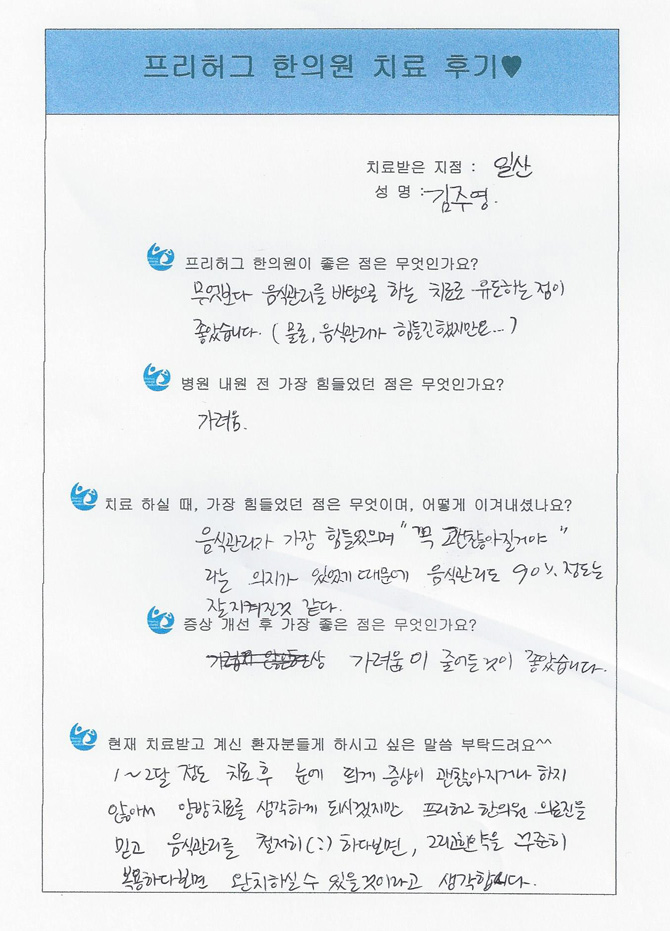 프리허그 한의원 치료 후기♥
치료받은 지점 : 일산
성 명 : 김주영.
프리허그 한의원이 좋은 점은 무엇인가요?
무엇보다 음식관리를 바탕으로 하는 치료로 유도하는 점이
좋았습니다. (물론, 음식관리가 힘들긴 했지만요...)
병원 내원 전 가장 힘들었던 점은 무엇인가요?
가려움.
치료 하실 때, 가장 힘들었던 점은 무엇이며, 어떻게 이겨내셨나요?
음식관리가 가장 힘들었으며 "꼭 괜찮아질거야"
라는 의지가 있었기 때문에 음식관리도 90% 정도는
잘 지켜진것 같다.
증상 개선 후 가장 좋은 점은 무엇인가요?
가려움이 줄어든 것이 좋았습니다.
현재 치료받고 계신 환자분들게 하시고 싶은 말씀 부탁드려요^^
1~2달 정도 치료 후 눈에 띄게 증상이 괜찮아지거나 하지
않아서 양방치료를 생각하게 되시겠지만 프리허그 한의원 의료진을
믿고 음식관리를 철저히(:) 하다보면, 그리고 한약을 꾸준히
복용하다보면 완치하실 수 있을것이라고 생각합니다.